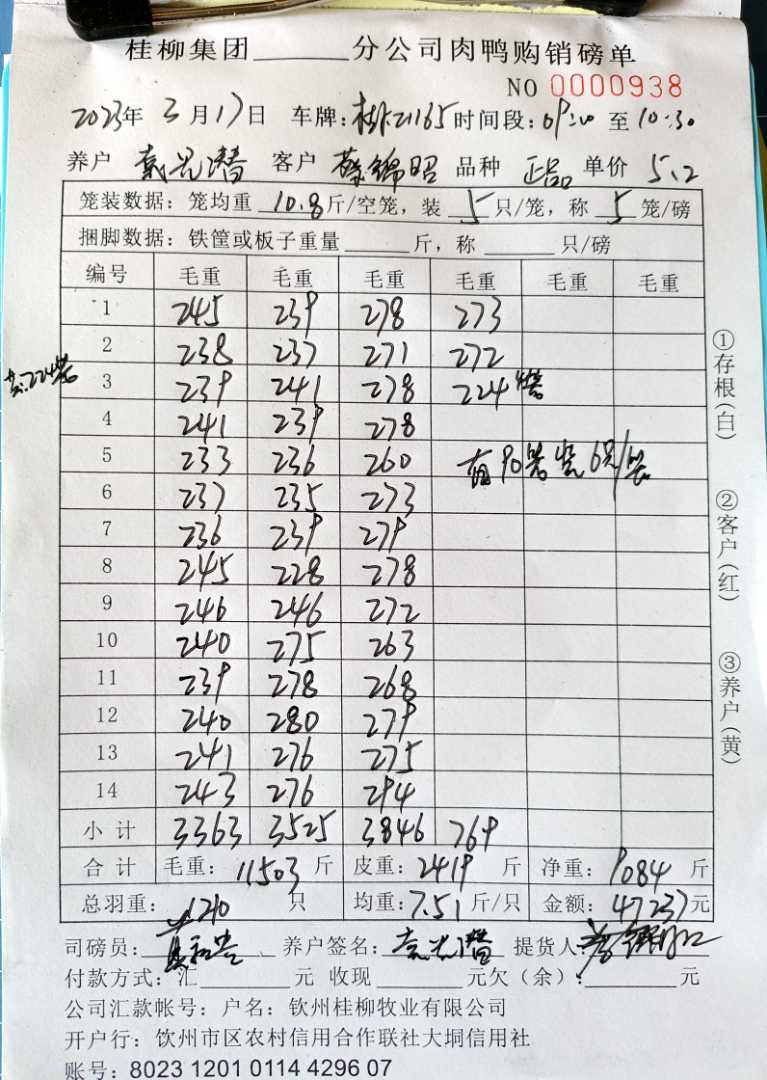 桂柳集团______分公司肉鸭购销磅单
NO 0000938
2023年 3月17日 车牌:桂K21165 时间段:09:20 至 10:30
养户 袁光潜 客户 蔡锦昭 品种 正品 单价 5.2
笼装数据: 笼均重 10.8斤/空笼, 装 5 只/笼, 称 5 笼/磅
捆脚数据: 铁筐或板子重量______斤, 称______只/磅
编号 毛重 毛重 毛重 毛重 毛重 毛重
1 245 239 278 273
2 238 237 271 272
共224笼
3 239 241 278 224 4笼
4 241 239 278
5 233 236 260 有90笼装6只/笼
6 237 235 273
7 236 239 279
8 245 228 278
9 246 246 272
10 240 275 263
11 239 278 268
12 240 280 279
13 241 276 275
14 243 276 294
小计 3363 3525 3846 769
合计 毛重: 11503 斤 皮重: 2419 斤 净重: 9084 斤
总羽重: 1210 只 均重: 7.51 斤/只 金额: 47237元
司磅员: 养户签名: 袁光潜 提货人:
付款方式: 汇______元 收现______元欠(余):______元
公司汇款帐号: 户名: 钦州桂柳牧业有限公司
开户行: 饮州市区农村信用合作联社大垌信用社
账号: 8023 1201 0114 4296 07
①存根(白)
②客户(红)
③养户(黄)